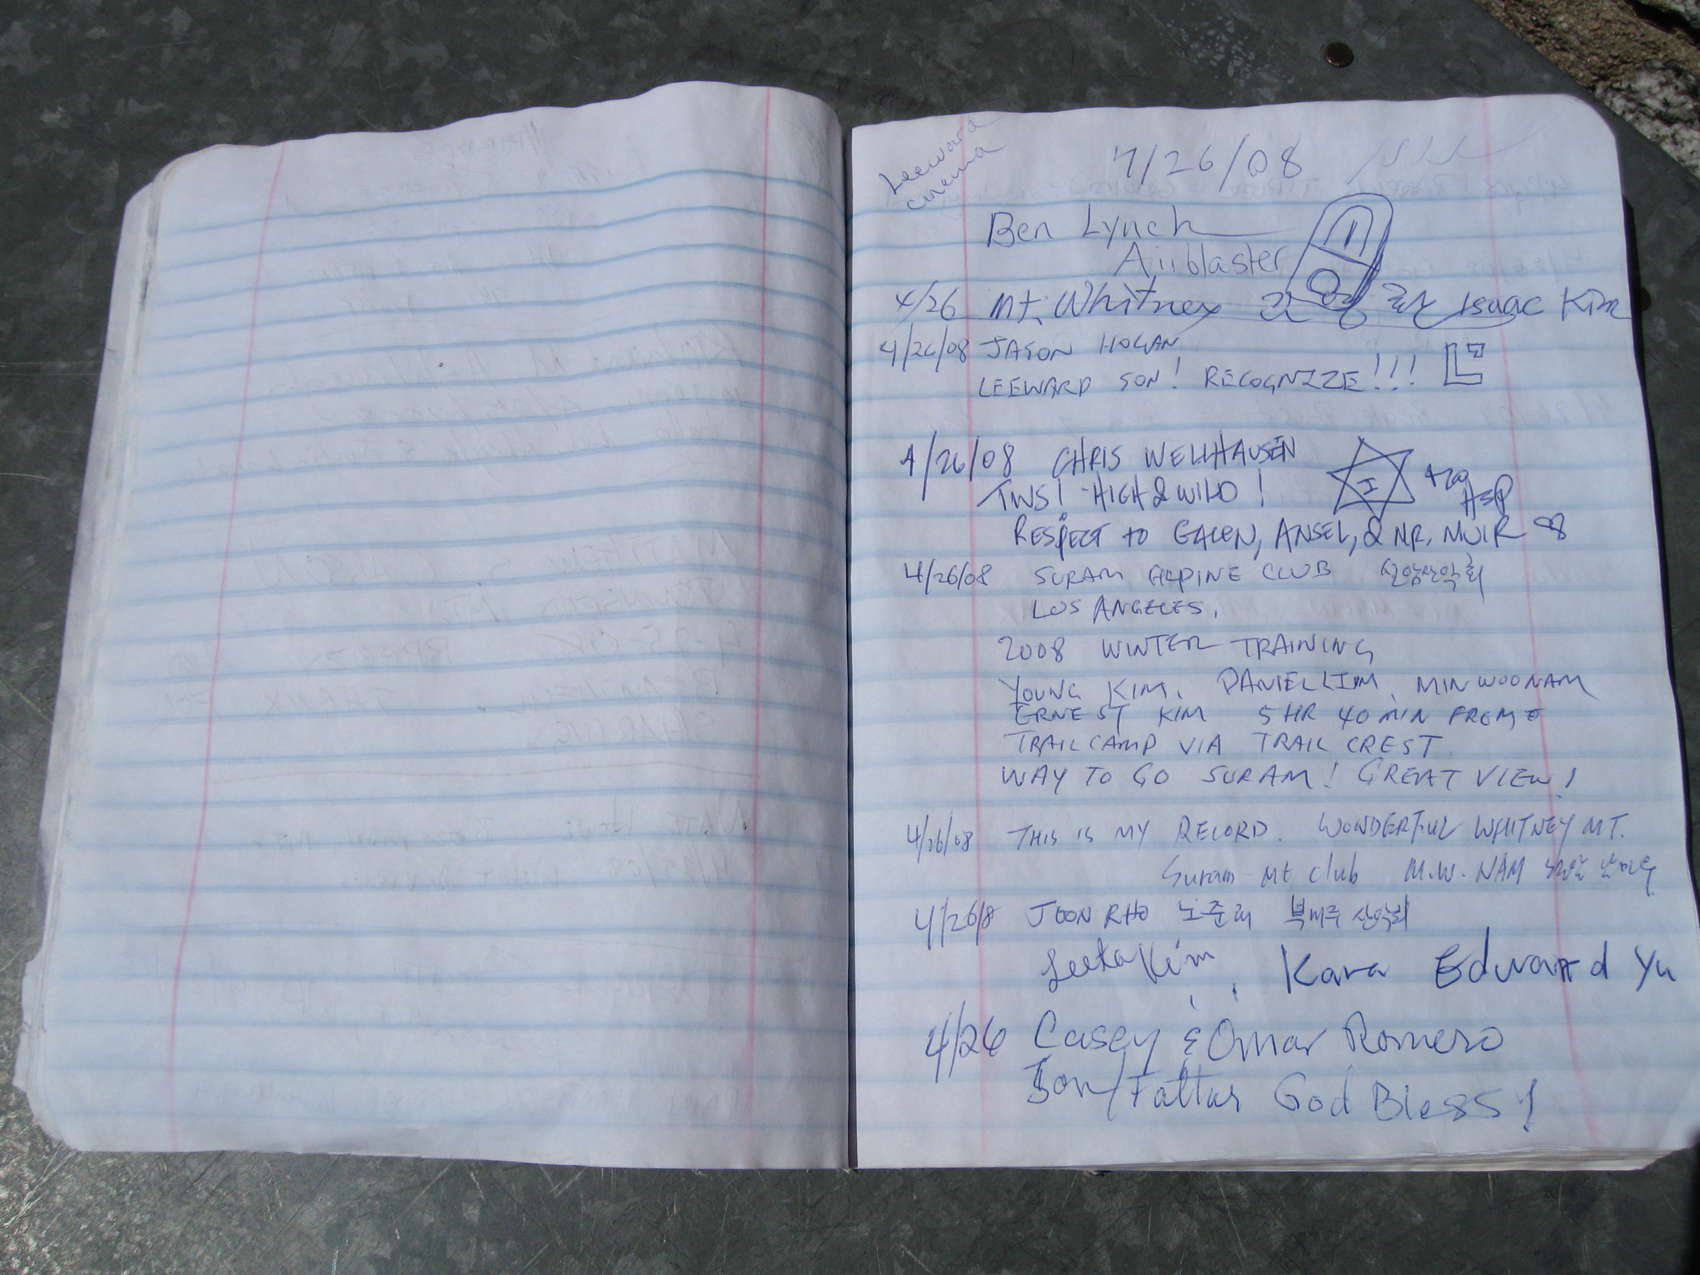 Leeward
cinema
4/26/08
Ben Lynch
Airblaster
4/26 Mt. Whitney Isaac Kim
4/26/08 JASON HOGAN
LEEWARD SON! RECOGNIZE!!!
4/26/08 CHRIS WELLHAUSEN
TWS! HIGH & WILD!
RESPECT TO GALEN, ANSEL, & MR. MUIR
4/26/08 SURAM ALPINE CLUB 수람산악회
LOS ANGELES,
2008 WINTER TRAINING
YOUNG KIM, DANIEL LIM, MINWOO NAM
ERNEST KIM 5 HR 40 MIN FROM
TRAIL CAMP VIA TRAIL CREST
WAY TO GO SURAM! GREAT VIEW!
4/26/08 THIS IS MY RECORD. WONDERFUL WHITNEY MT.
Suram Mt club M.W. NAM
4/26/8 JOON RHO 노준래 북미주 산악회
Kim, Kara Edward Yu
4/26 Casey & Omar Romero
Son/Father God Bless!